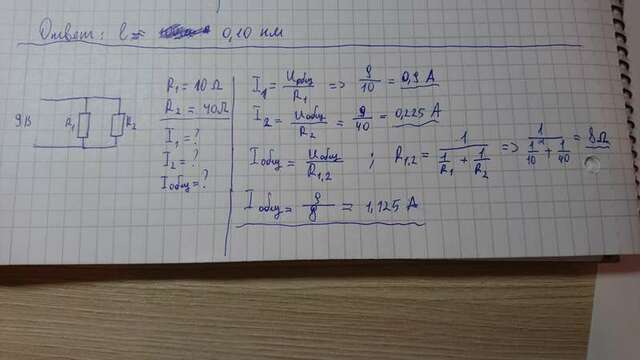 Ответ: l = 0,10 нм
9 В
R₁
R₂
R₁ = 10 Ω
R₂ = 40Ω
I₁ = ?
I₂ = ?
Iобщ = ?
I₁ = Uобщ/R₁ => 9/10 = 0,9 A
I₂ = Uобщ/R₂ = 9/40 = 0,225 A
Iобщ = Uобщ/R₁,₂ ; R₁,₂ = 1/(1/R₁ + 1/R₂) => 1/(1/10 + 1/40) = 8 Ω
Iобщ = 9/8 = 1,125 A